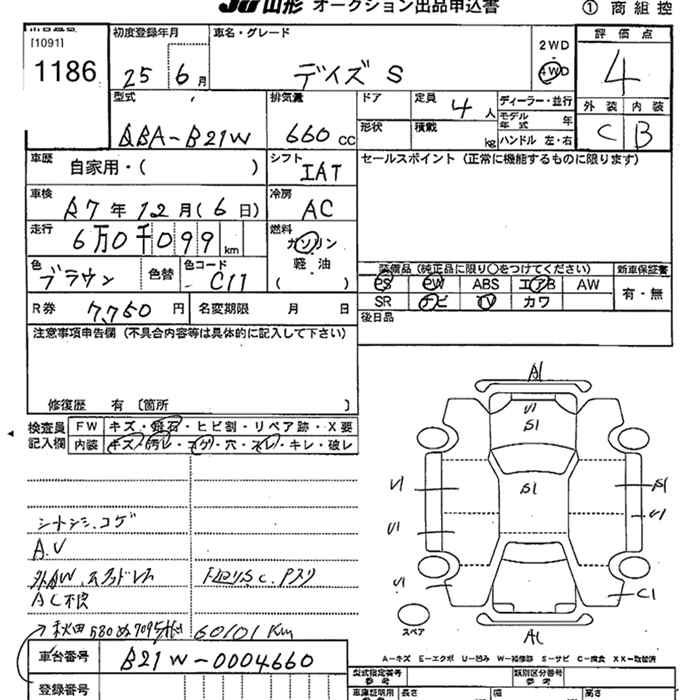 JU山形 オークション出品申込書
① 商 組 控
[1091]
1186
初度登録年月
25 6月
車名・グレード
デイズ S
2WD
4WD
評価点
4
外装 内装
C B
型式
DBA-B21W
排気量
660 CC
ドア
定員 4 人
形状
積載 kg
ディーラー・並行
モデル年式 年
ハンドル 左・右
車歴
自家用・( )
シフト
IAT
セールスポイント (正常に機能するものに限ります)
車検
R7年12月(6日)
冷房
AC
走行
6万0千099 km
燃料
ガソリン
軽・油
( )
色
ブラウン
色替
色コード
C11
装備品 (純正品に限り○をつけてください)
新車保証書
PS PW ABS エアB AW
有・無
SR ナビ TV カワ
R券 7,750円
名変期限 月 日
後日品
注意事項申告欄 (不具合内容等は具体的に記入して下さい)
修復歴 有 〔箇所 〕
検査員記入欄
FW キズ・飛石・ヒビ割・リペア跡・X要
内装 キズ・汚レ・コゲ・穴・スレ・キレ・破レ
A1
U1
S1
S1
U1
U1
U1
S1
U1
C1
A1
スペア
A.V
60101 Km
車台番号
B21W-0004660
登録番号
A−キズ E−エクボ U−凹み W−補修跡 S−サビ C−腐食 XX−取替済
型式指定番号
参考
類別区分番号
参考
車庫証明用
長さ
幅
高さ